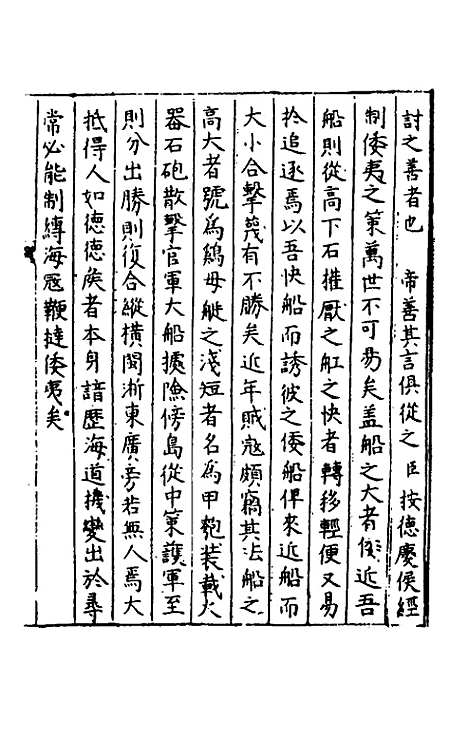 討之善者也　帝善其言俱從之臣按德慶侯經
制倭夷之策萬世不可易矣盖船之大者倭近吾
船則從高下石推厭之舡之快者轉移輕便又易
扵追逐焉以吾快船而誘彼之倭船俾来近船而
大小合擊蔑有不勝矣近年賊寇頗竊其法船之
高大者號爲鷄母艇之淺短者名爲甲麭装載火
器石砲散擊官軍大船據險傍島從中策護軍至
則分出勝則復合縱橫閩浙東廣旁若無人焉大
抵得人如德德侯者本身諳歷海道機變出於尋
常必能制縛海寇鞭撻倭夷矣